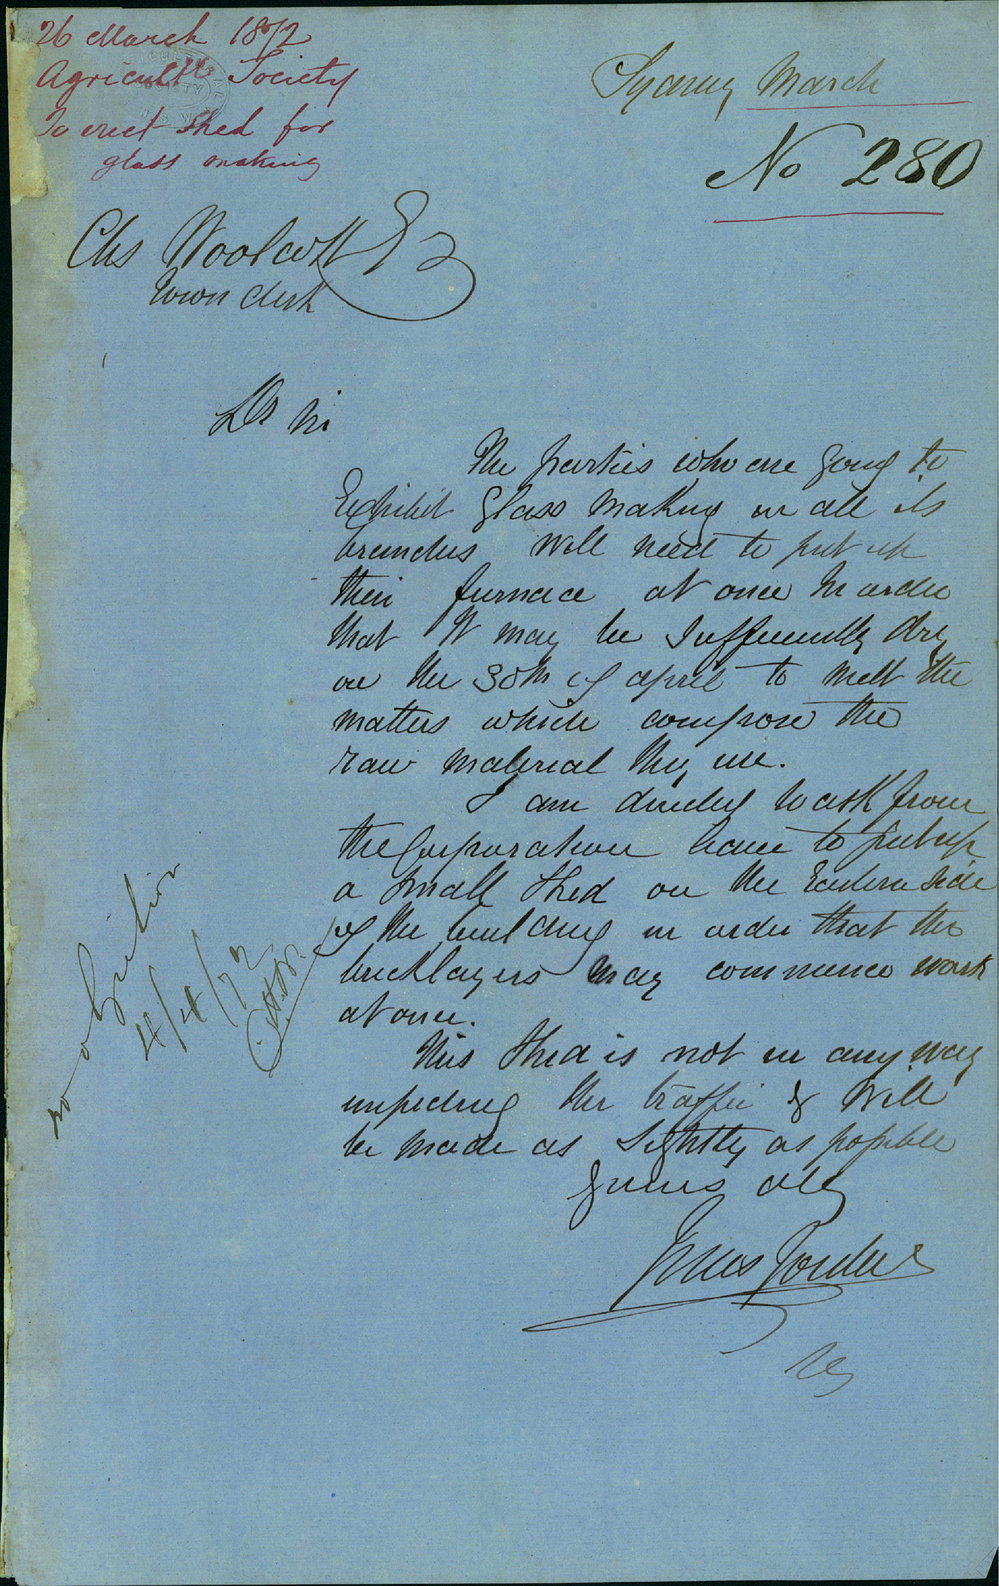 26 March 1872
Agricultl Society
To erect Shed for
glass making
Sydney March
No 280
Chs Woolcott Esq
Town Clerk
Dr Sir
The parties who are going to
Exhibit Glass Making in all its
branches Will need to put up
their furnace at once In order
that It may be Sufficiently dry
on the 30th of april to melt the
matters which compose the
raw material they use.
I am directed to ask from
the Corporation leave to put up
a Small Shed on the Eastern side
of the building in order that the
bricklayers may commence work
at once.
This Shed is not in any way
impeding the traffic & Will
be made as Sightly as possible
Yours obly
Jules Joubert
no objection
4/4/72